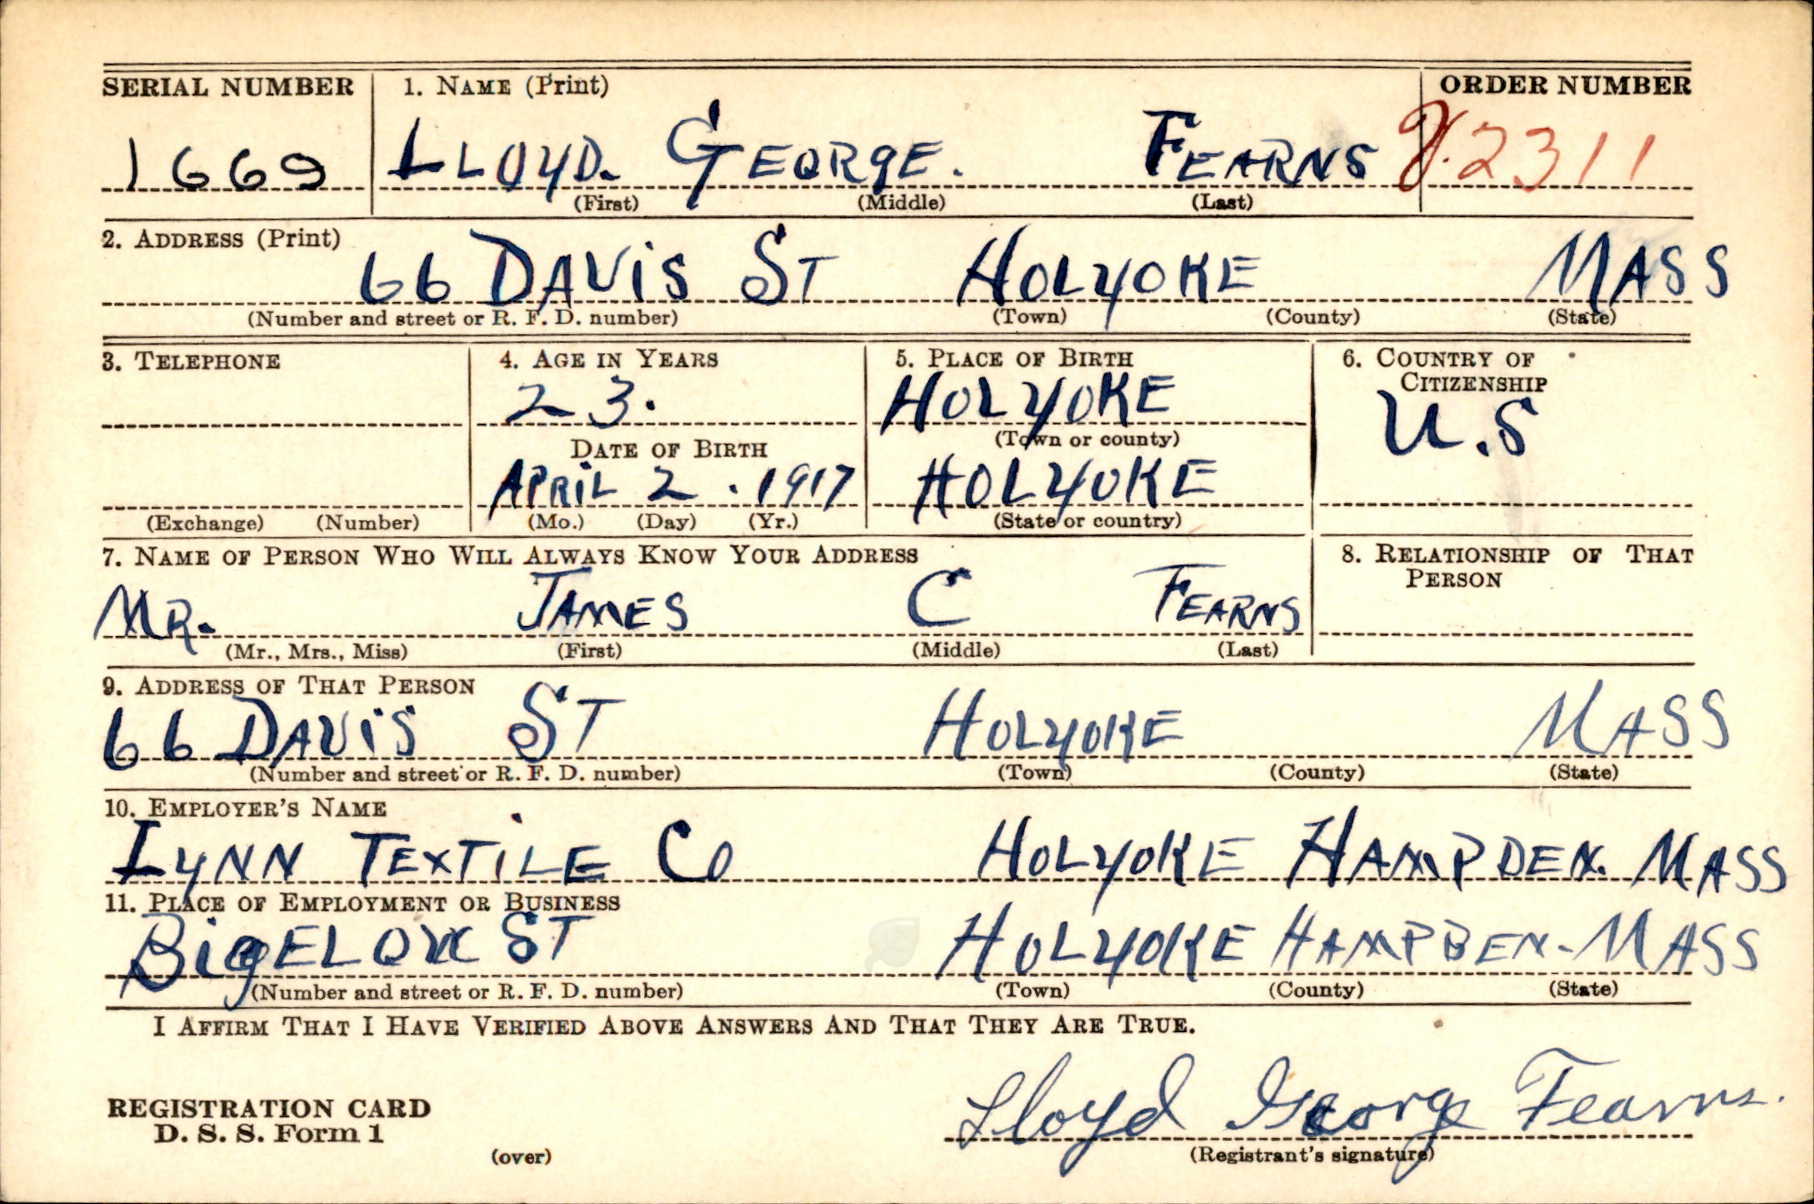 SERIAL NUMBER 1. NAME (Print) ORDER NUMBER
1669 LLOYD. GEORGE. FEARNS V.2311
(First) (Middle) (Last)
2. ADDRESS (Print)
66 DAVIS ST HOLYOKE MASS
(Number and street or R. F. D. number) (Town) (County) (State)
3. TELEPHONE 4. AGE IN YEARS 5. PLACE OF BIRTH 6. COUNTRY OF
CITIZENSHIP
23. HOLYOKE U.S
(Town or county)
DATE OF BIRTH
APRIL 2 . 1917 HOLYOKE
(Exchange) (Number) (Mo.) (Day) (Yr.) (State or country)
7. NAME OF PERSON WHO WILL ALWAYS KNOW YOUR ADDRESS 8. RELATIONSHIP OF THAT
PERSON
MR. JAMES C FEARNS
(Mr., Mrs., Miss) (First) (Middle) (Last)
9. ADDRESS OF THAT PERSON
66 DAVIS ST HOLYOKE MASS
(Number and street or R. F. D. number) (Town) (County) (State)
10. EMPLOYER'S NAME
LYNN TEXTILE CO HOLYOKE HAMPDEN. MASS
11. PLACE OF EMPLOYMENT OR BUSINESS
BIGELOW ST HOLYOKE HAMPDEN-MASS
(Number and street or R. F. D. number) (Town) (County) (State)
I AFFIRM THAT I HAVE VERIFIED ABOVE ANSWERS AND THAT THEY ARE TRUE.
REGISTRATION CARD
D. S. S. Form 1 Lloyd George Fearns.
(over) (Registrant's signature)